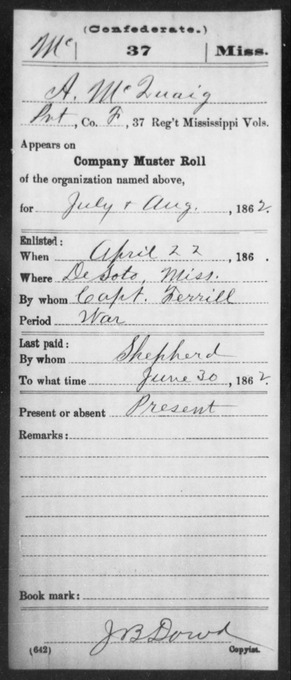 (Confederate.)
Mc | 37 | Miss.
A. McQuaig
Pvt, Co. F, 37 Reg't Mississippi Vols.
Appears on
Company Muster Roll
of the organization named above,
for July & Aug., 1862.
Enlisted:
When April 22, 186 .
Where De Soto, Miss.
By whom Capt. Terrill
Period War
Last paid:
By whom Shepherd
To what time June 30, 1862.
Present or absent Present
Remarks:
Book mark:
J B Dowd
(642) Copyist.